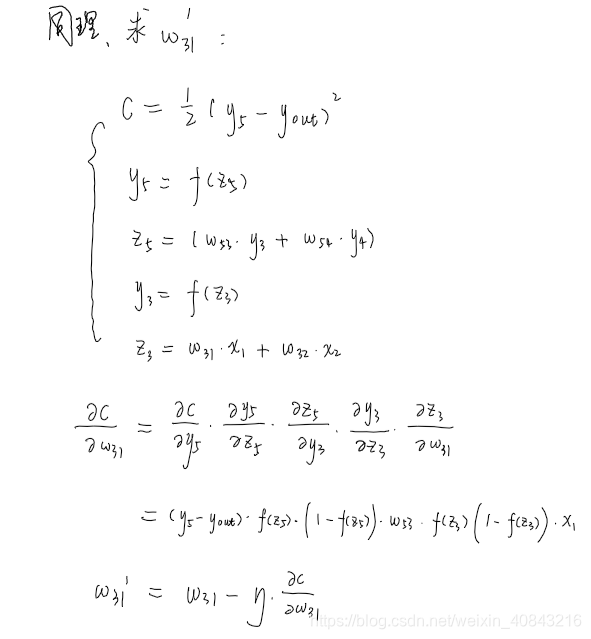 同理、求 w₃₁′ :
C = 1/2 (y₅ - yout)²
y₅ = f(z₅)
z₅ = (w₅₃·y₃ + w₅₄·y₄)
y₃ = f(z₃)
z₃ = w₃₁·x₁ + w₃₂·x₂
∂C/∂w₃₁ = ∂C/∂y₅ · ∂y₅/∂z₅ · ∂z₅/∂y₃ · ∂y₃/∂z₃ · ∂z₃/∂w₃₁
= (y₅-yout)·f(z₅)·(1-f(z₅))·w₅₃·f(z₃)(1-f(z₃))·x₁
w₃₁′ = w₃₁ - η·∂C/∂w₃₁
https://blog.csdn.net/weixin_40843216